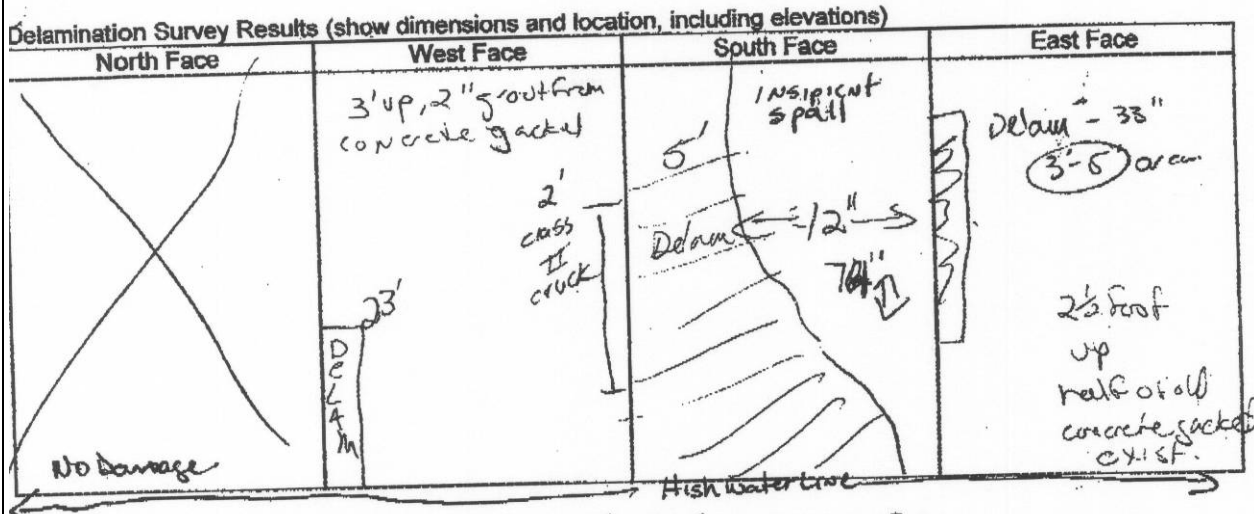 Delamination Survey Results (show dimensions and location, including elevations)
North Face
West Face
South Face
East Face
No Damage
3' up, 2" grout from
concrete gacket
2'
class
II
cruck
23'
DELAM
insipient
spall
5'
Delam
12"
Delam - 33"
3'-5" area
2½ foot
up
half of old
concrete gacket
exist.
High water Line